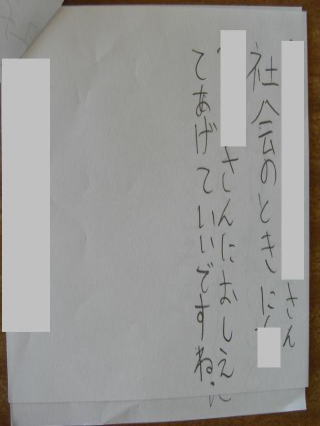 さん
社会のときに
さんにおしえ
てあげていいですね。